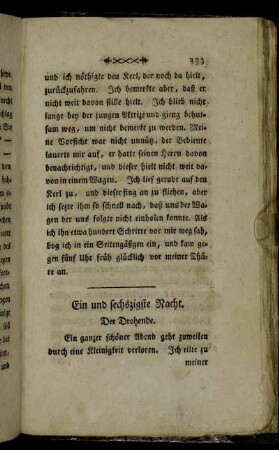 333
und ich nöthigte den Kerl, der noch da hielt,
zurückzufahren. Ich bemerkte aber, daß er
nicht weit davon stille hielt. Ich blieb nicht
lange bey der jungen Aktrize und gieng behut-
sam weg, um nicht bemerkt zu werden. Mei-
ne Vorsicht war nicht unnütz, der Bediente
lauerte mir auf, er hatte seinen Herrn davon
benachrichtigt, und dieser hielt nicht weit da-
von in einem Wagen. Ich lief gerade auf den
Kerl zu, und dieser fing an zu fliehen, aber
ich sezte ihm so schnell nach, daß uns der Wa-
gen der uns folgte nicht einholen konnte. Als
ich ihn etwa hundert Schritte vor mir weg sah,
bog ich in ein Seitengäßgen ein, und kam ge-
gen fünf Uhr früh glücklich vor meiner Thü-
re an.
Ein und sechszigste Nacht.
Der Drohende.
Ein ganzer schöner Abend geht zuweilen
durch eine Kleinigkeit verloren. Ich eilte zu
meiner